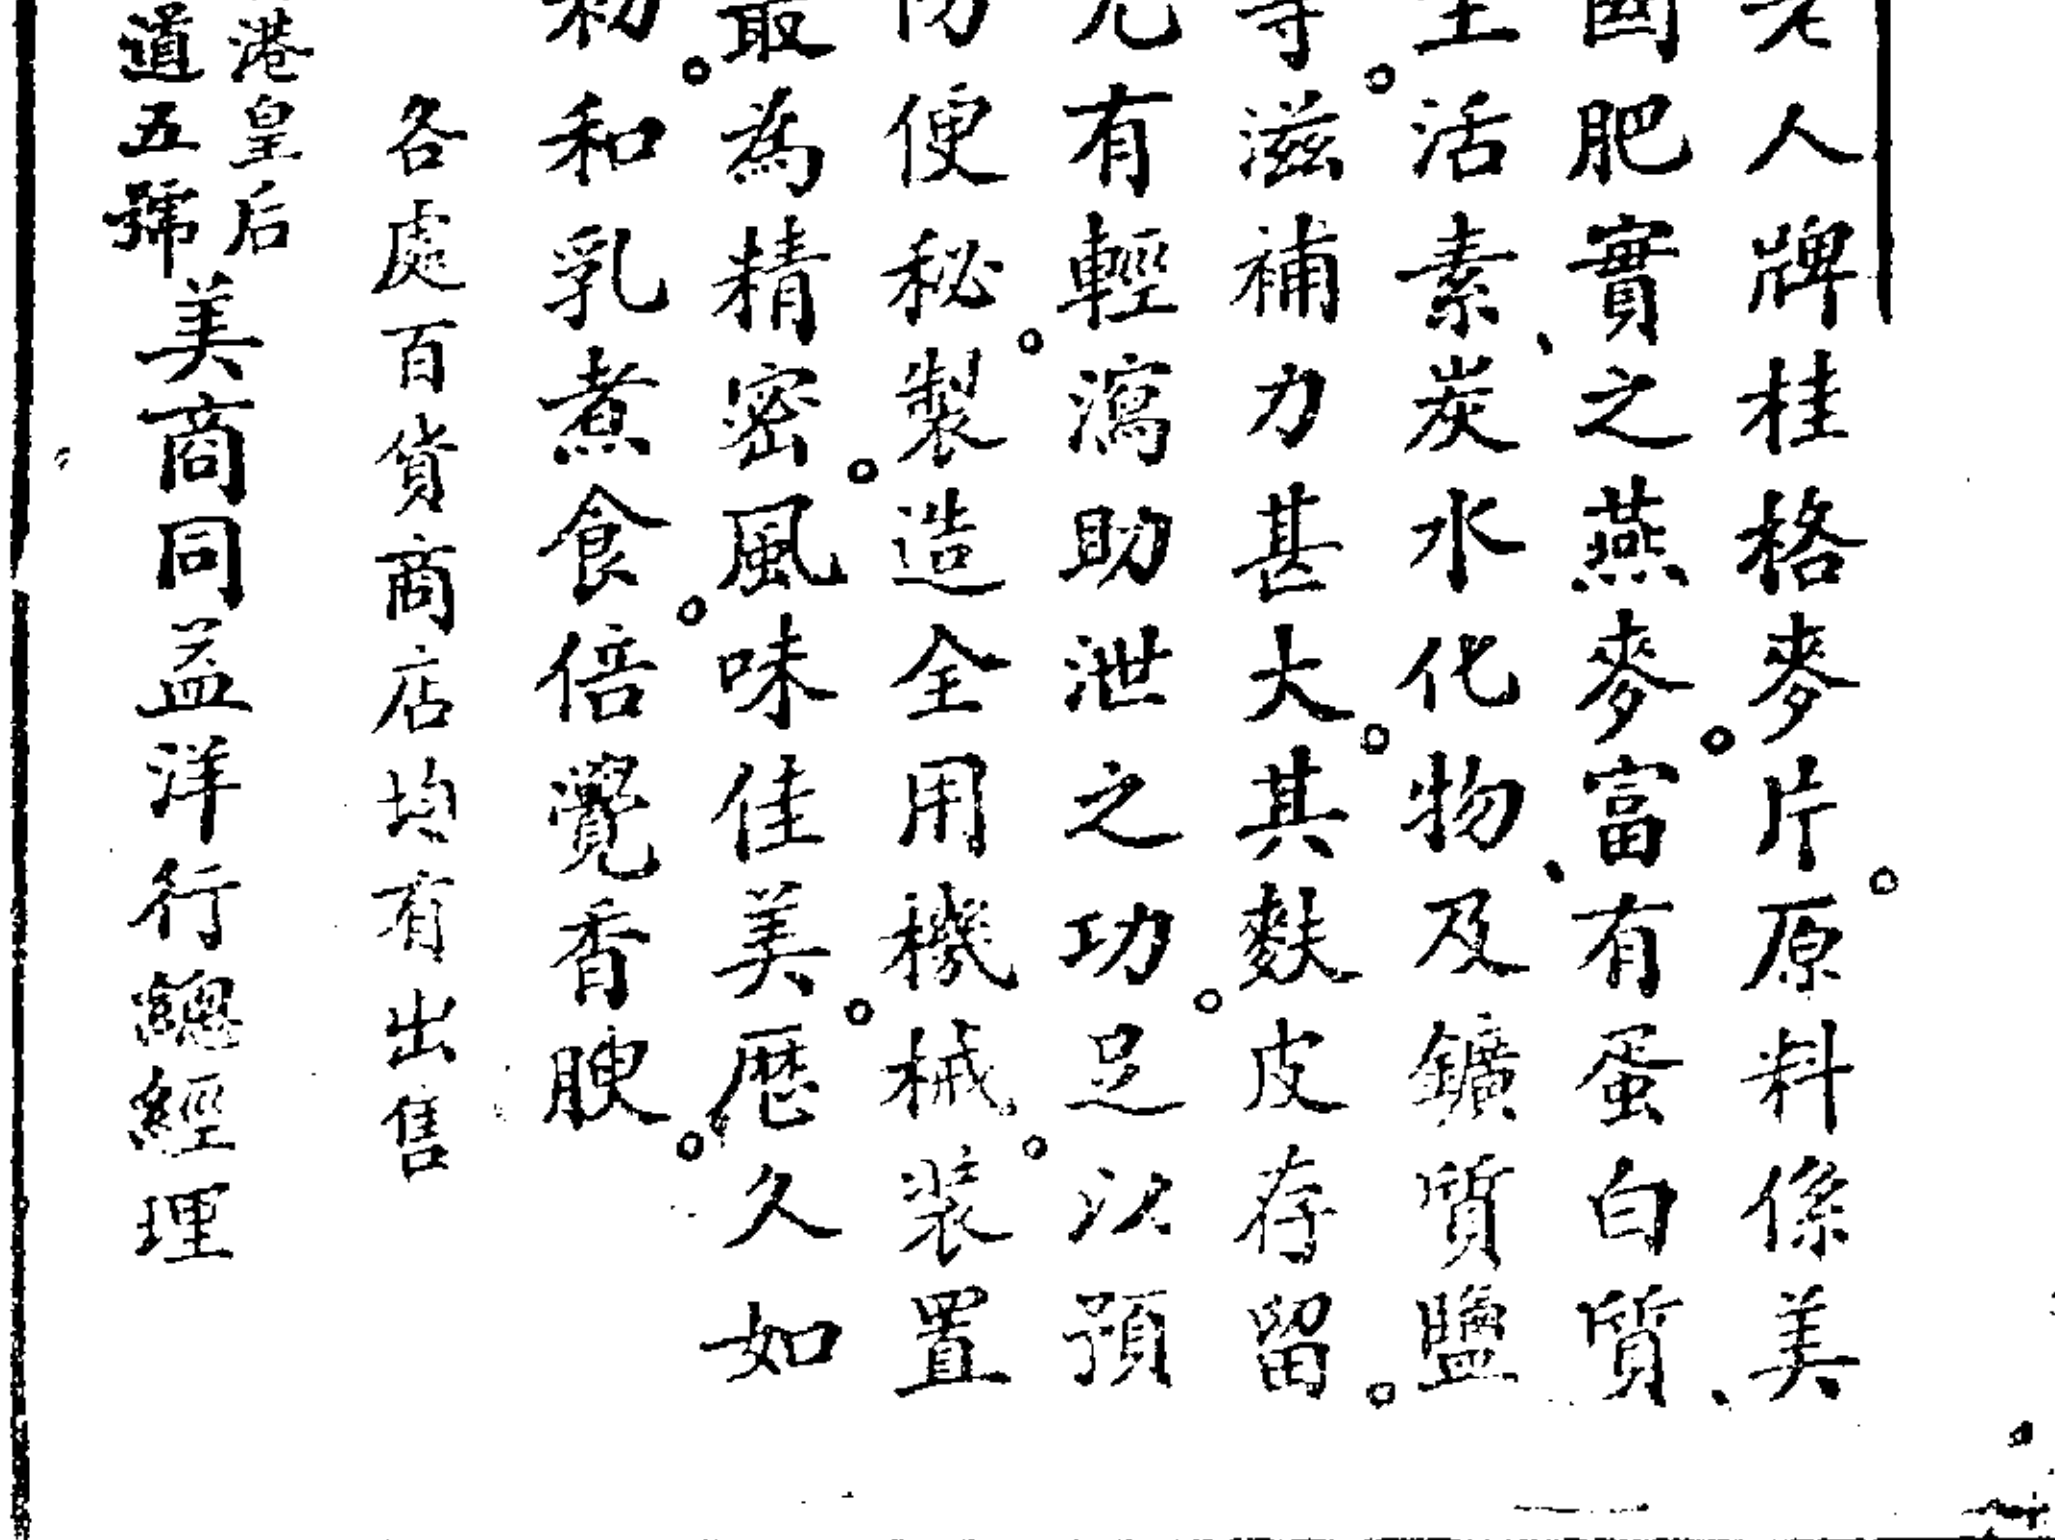 老人牌桂格麥片。原料係美
國肥實之燕麥。富有蛋白質、
生活素、炭水化物、及鑛質鹽
等。滋補力甚大。其麩皮存留。
尤有輕瀉助泄之功。足以預
防便秘。製造全用機械。裝置
最為精密。風味佳美。歷久如
初。和乳煮食。倍覺香腴。
各處百貨商店均有出售
港皇后
道五號
美商同益洋行總經理